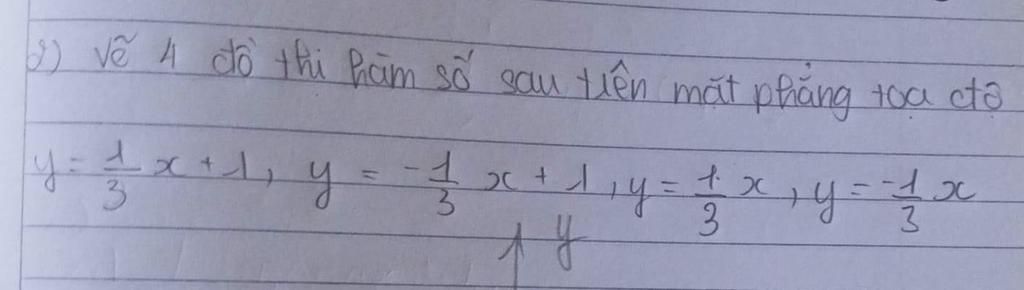 2) Vẽ 4 đồ thi hàm số sau trên mặt phẳng tọa độ
y = 1/3 x + 1, y = -1/3 x + 1, y = 1/3 x, y = -1/3 x
y